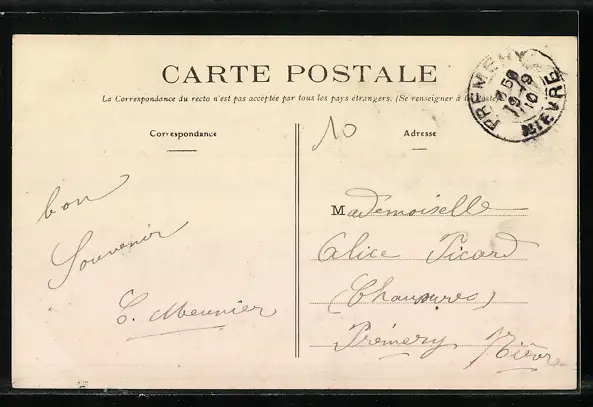 CARTE POSTALE
La Correspondance du recto n'est pas acceptée par tous les pays étrangers. (Se renseigner à la Poste)
PREMERY
3 50
19 -9
10
NIEVRE
Correspondance
10
Adresse
bon
Souvenir
E. Meunier
Mademoiselle
Alice Picard
(Chaussures)
Prémery Nièvre